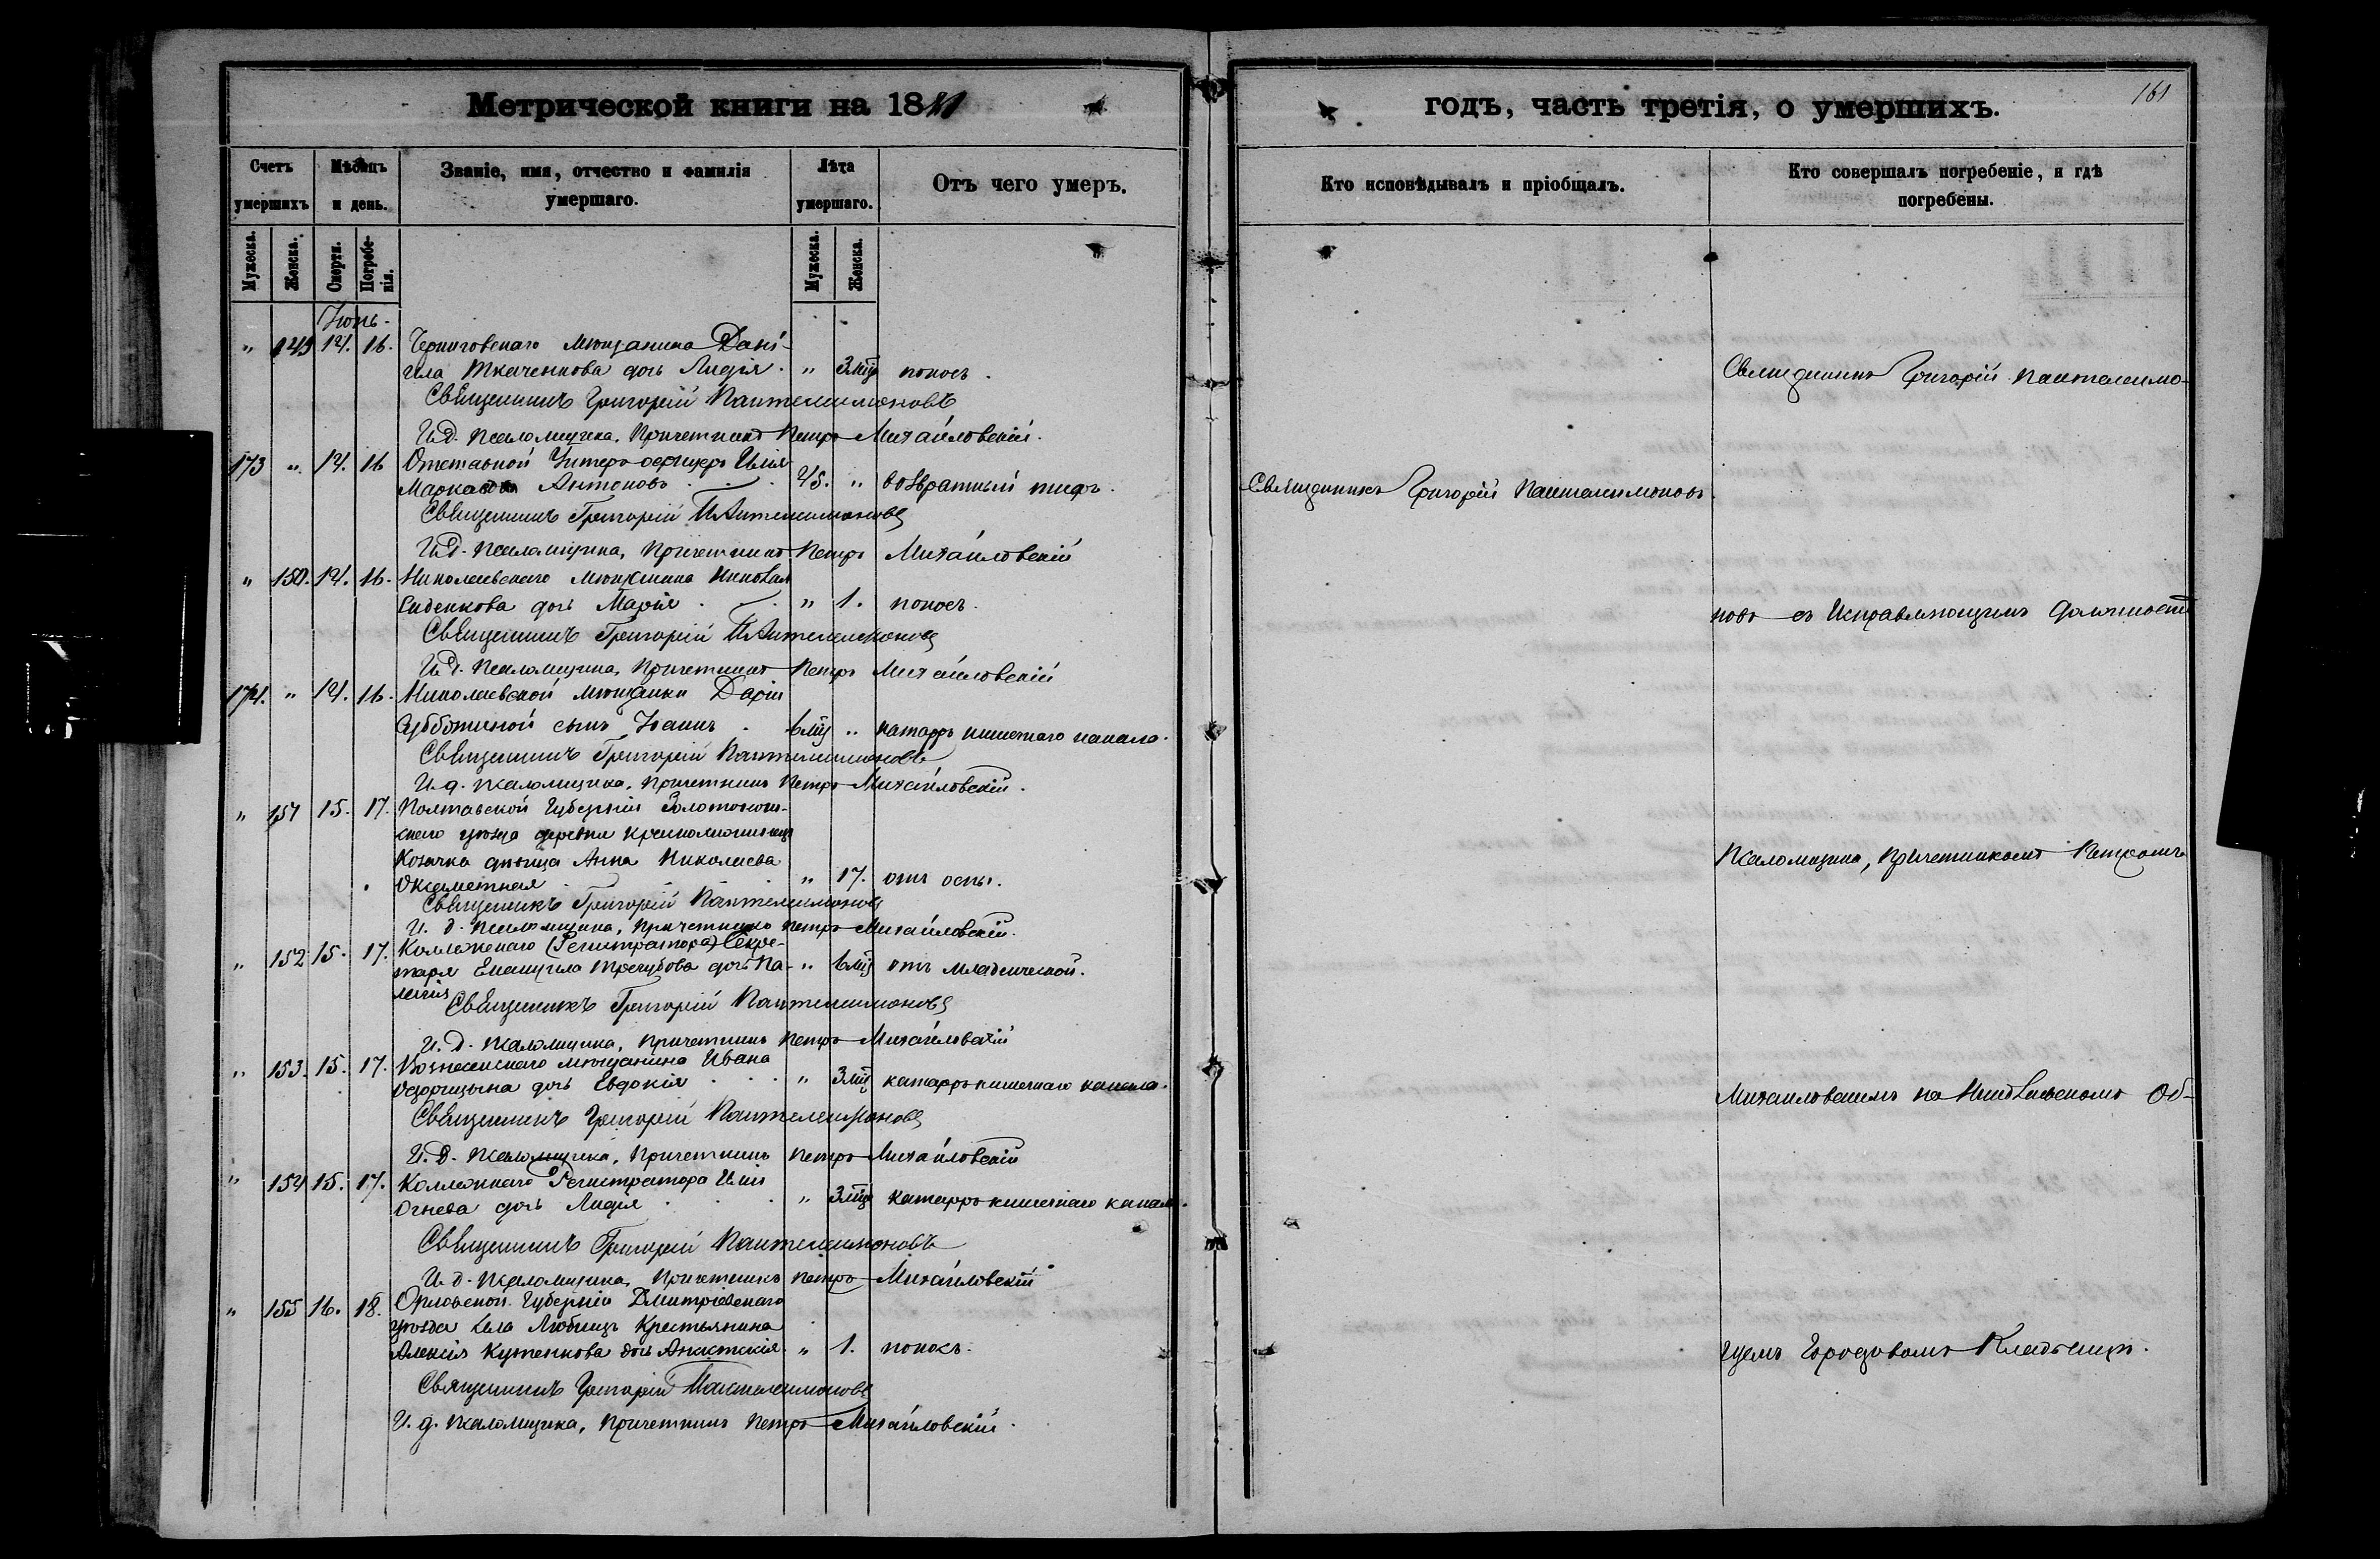 Метрической книги на 1881
годъ, часть третія, о умершихъ.
161
Счетъ умершихъ
Мѣсяцъ и день.
Званіе, имя, отчество и фамилія умершаго.
Лѣта умершаго.
Отъ чего умеръ.
Кто исповѣдывалъ и пріобщалъ.
Кто совершалъ погребеніе, и гдѣ погребены.
Мужеска.
Женска.
Смерти.
Погребенія.
Мужеска.
Женска.
Іюнь.
" 149 14. 16. Черниговскаго мѣщанина Дані-
ила Ткаченкова дочь Лидія. " 3 мц поносъ.
Священникъ Григорій Пантелеимоновъ
И.д. псаломщика, Причетникъ Петръ Михайловскій.
173 " 14. 16 Отставной Унтеръ-офицеръ Илія
Антоновъ 45. " возвратный тифъ. Священникъ Григорій Пантелеимоновъ.
Священникъ Григорій Пантелеимоновъ
И.д. псаломщика, Причетникъ Петръ Михайловскій
" 150. 14. 16. Николаевскаго мѣщанина Николая
Сиденкова дочь Марія " 1. поносъ.
Священникъ Григорій Пантелеимоновъ
И.д. псаломщика, Причетникъ Петръ Михайловскій
174. " 14. 16. Николаевской мѣщанки Даріи
Субботиной сынъ Іоаннъ 6 мц " катарръ кишечнаго канала.
Священникъ Григорій Пантелеимоновъ
И.д. псаломщика, Причетникъ Петръ Михайловскій.
" 151 15. 17. Полтавской Губерніи Золотонош-
скаго уѣзда деревни
Козачка дѣвица Анна Николаева
" 17. отъ оспы.
Священникъ Григорій Пантелеимоновъ
И.д. псаломщика, Причетникъ Петръ Михайловскій.
" 152 15. 17. Коллежскаго (Регистратора) Секре-
таря Емануила Трегубова дочь Пе- " 6 мц отъ младенческой.
лагія
Священникъ Григорій Пантелеимоновъ
И.д. псаломщика, Причетникъ Петръ Михайловскій
" 153. 15. 17. Вознесенскаго мѣщанина Ивана
дочь Евдокія " 3 мц катарръ кишечнаго канала.
Священникъ Григорій Пантелеимоновъ
И.д. псаломщика, Причетникъ Петръ Михайловскій
" 154 15. 17. Коллежскаго Регистратора Иліи
Огнева дочь Лидія " 3 мц катарръ кишечнаго канала.
Священникъ Григорій Пантелеимоновъ
И.д. псаломщика, Причетникъ Петръ Михайловскій
" 155 16. 18. Орловской Губерніи Дмитріевскаго
уѣзда села Крестьянина
Алексія Кутенкова дочь Анастасія. " 1. поносъ.
Священникъ Григорій Пантелеимоновъ
И.д. псаломщика, Причетникъ Петръ Михайловскій.
Священникъ Григорій Пантелеимо-
новъ съ Исправляющимъ Должность
Псаломщика, Причетникомъ Петромъ
Михайловскимъ на Николаевскомъ Об-
щемъ Городовомъ Кладбищѣ.